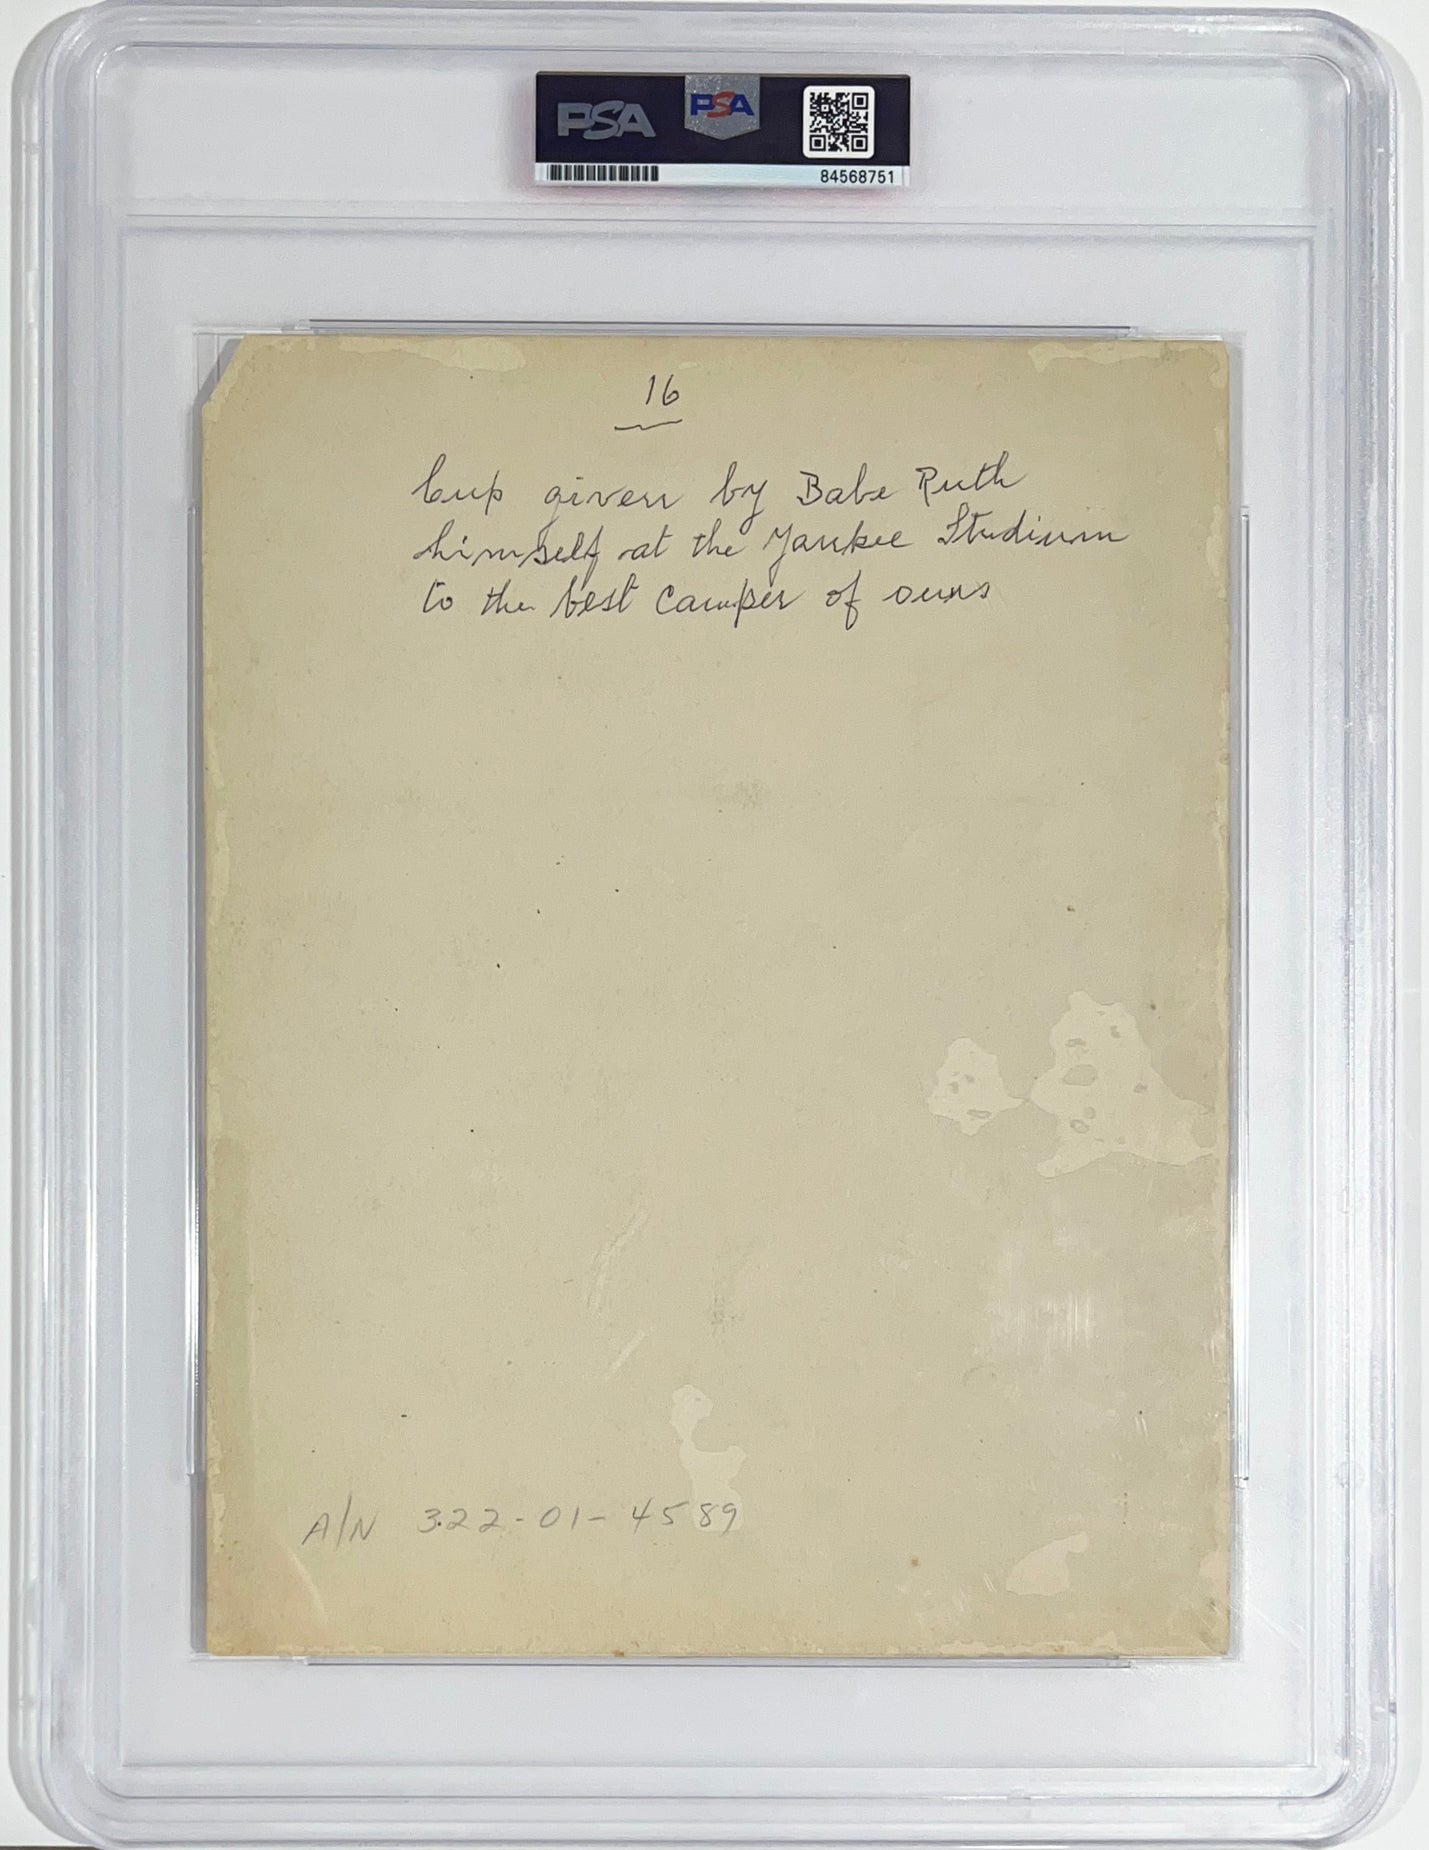 PSA PSA
84568751
16
Cup given by Babe Ruth
himself at the Yankee Studium
to the best camper of ours
A/N 322-01-4589